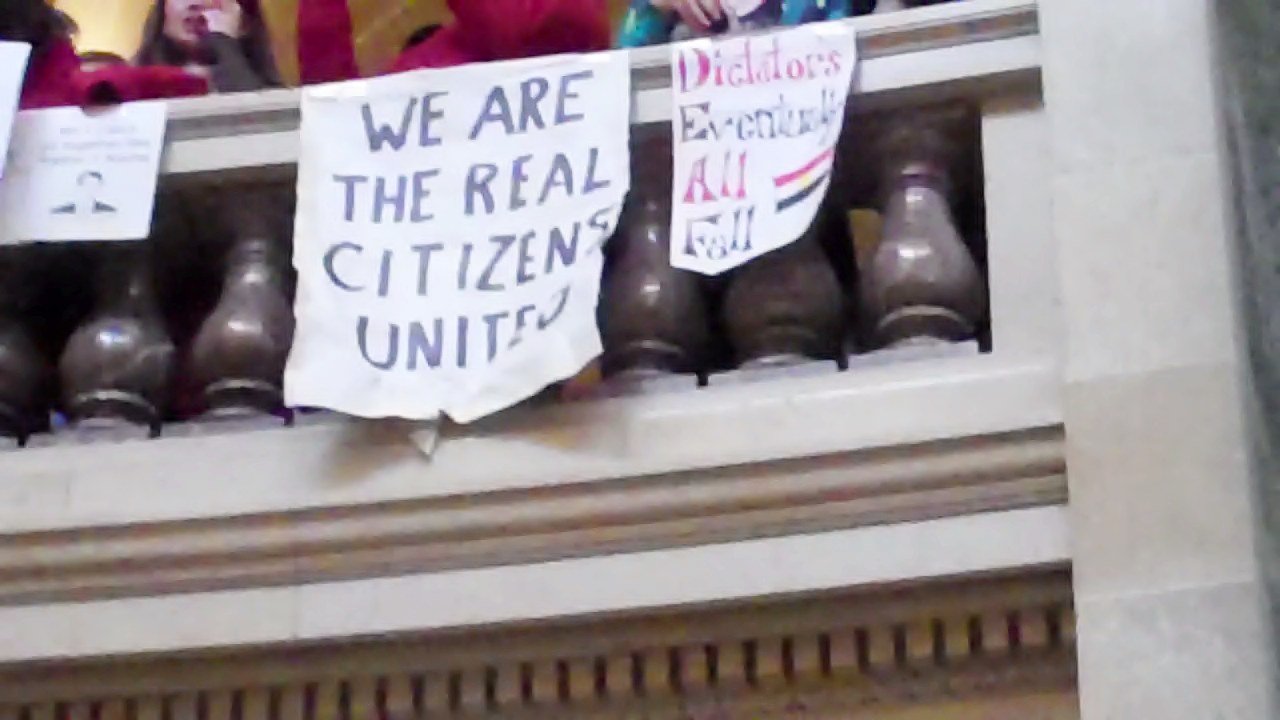 WE ARE
THE REAL
CITIZENS
UNITED
Dictators
Eventually
All
Fall